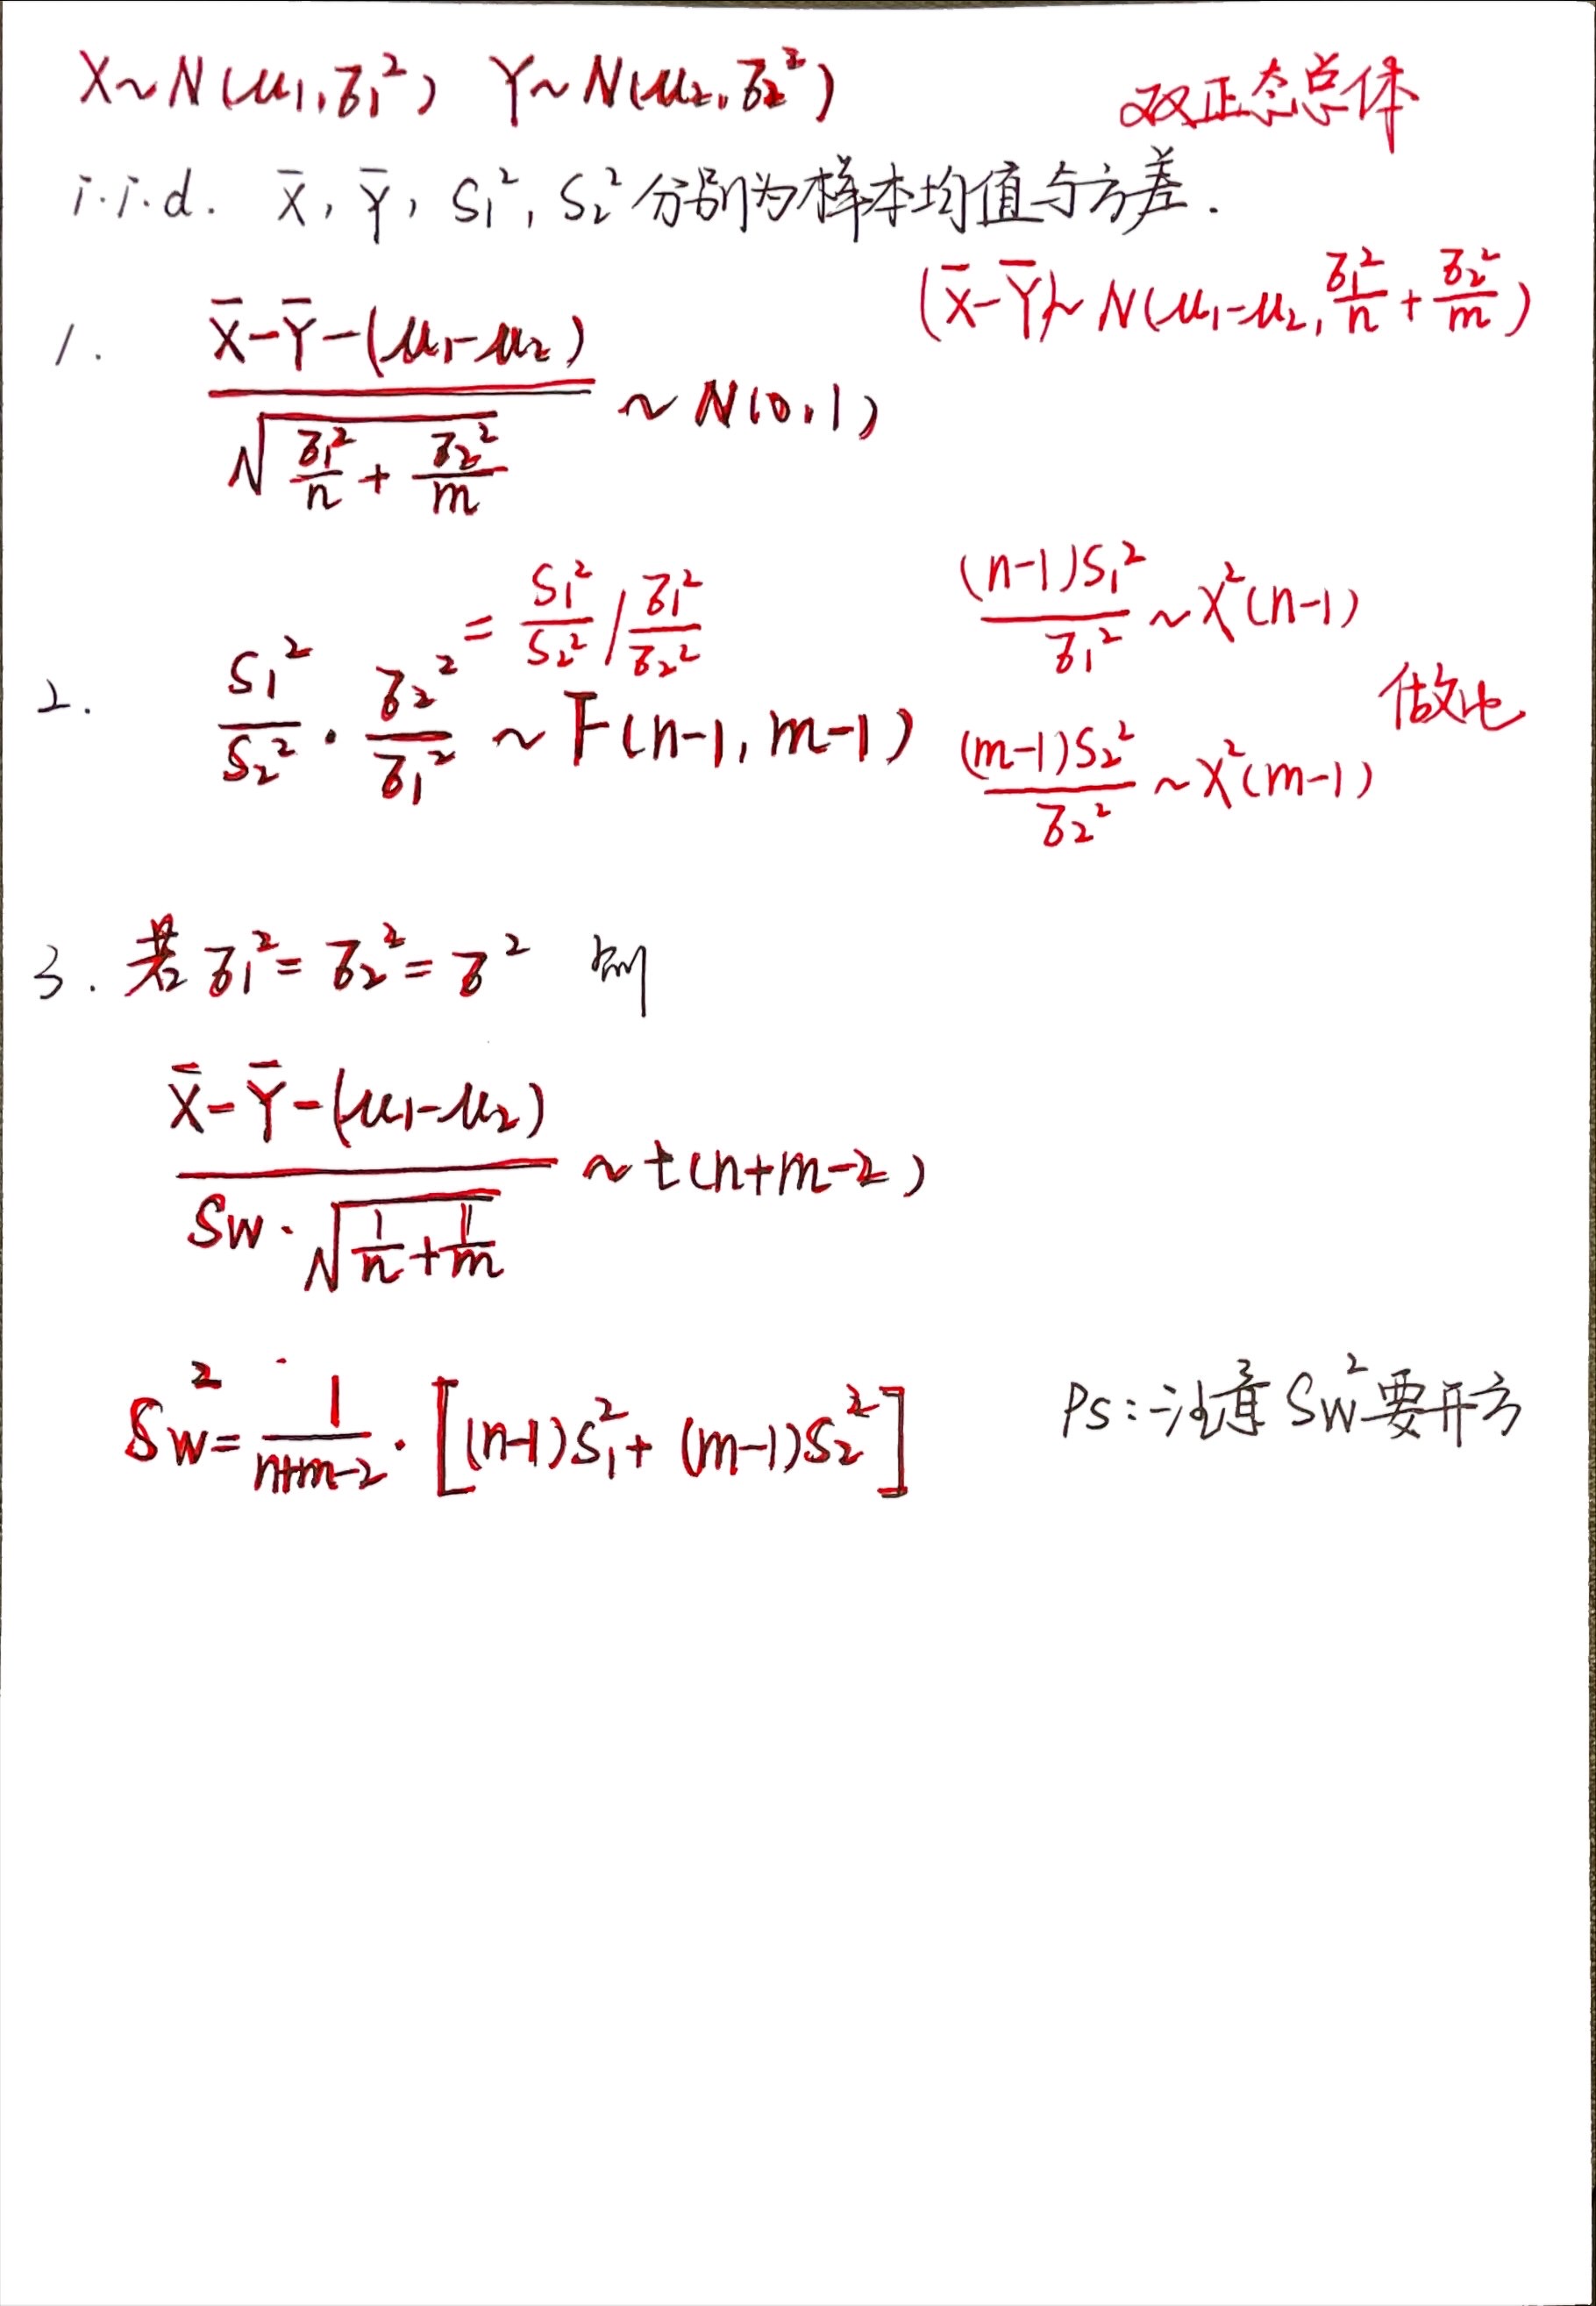 X~N(μ₁,σ₁²) Y~N(μ₂,σ₂²) 双正态总体
i.i.d. X̄, Ȳ, S₁², S₂² 分别为样本均值与方差.
(X̄-Ȳ)~N(μ₁-μ₂, σ₁²/n + σ₂²/m)
1. (X̄-Ȳ-(μ₁-μ₂)) / √(σ₁²/n + σ₂²/m) ~ N(0,1)
= S₁²/S₂² / σ₁²/σ₂² (n-1)S₁²/σ₁² ~ χ²(n-1)
2. S₁²/S₂² · σ₂²/σ₁² ~ F(n-1, m-1) 做比
(m-1)S₂²/σ₂² ~ χ²(m-1)
3. 若 σ₁² = σ₂² = σ² 则
(X̄-Ȳ-(μ₁-μ₂)) / (Sw·√(1/n + 1/m)) ~ t(n+m-2)
Sw² = 1/(n+m-2) · [(n-1)S₁² + (m-1)S₂²] PS:注意 Sw² 要开方